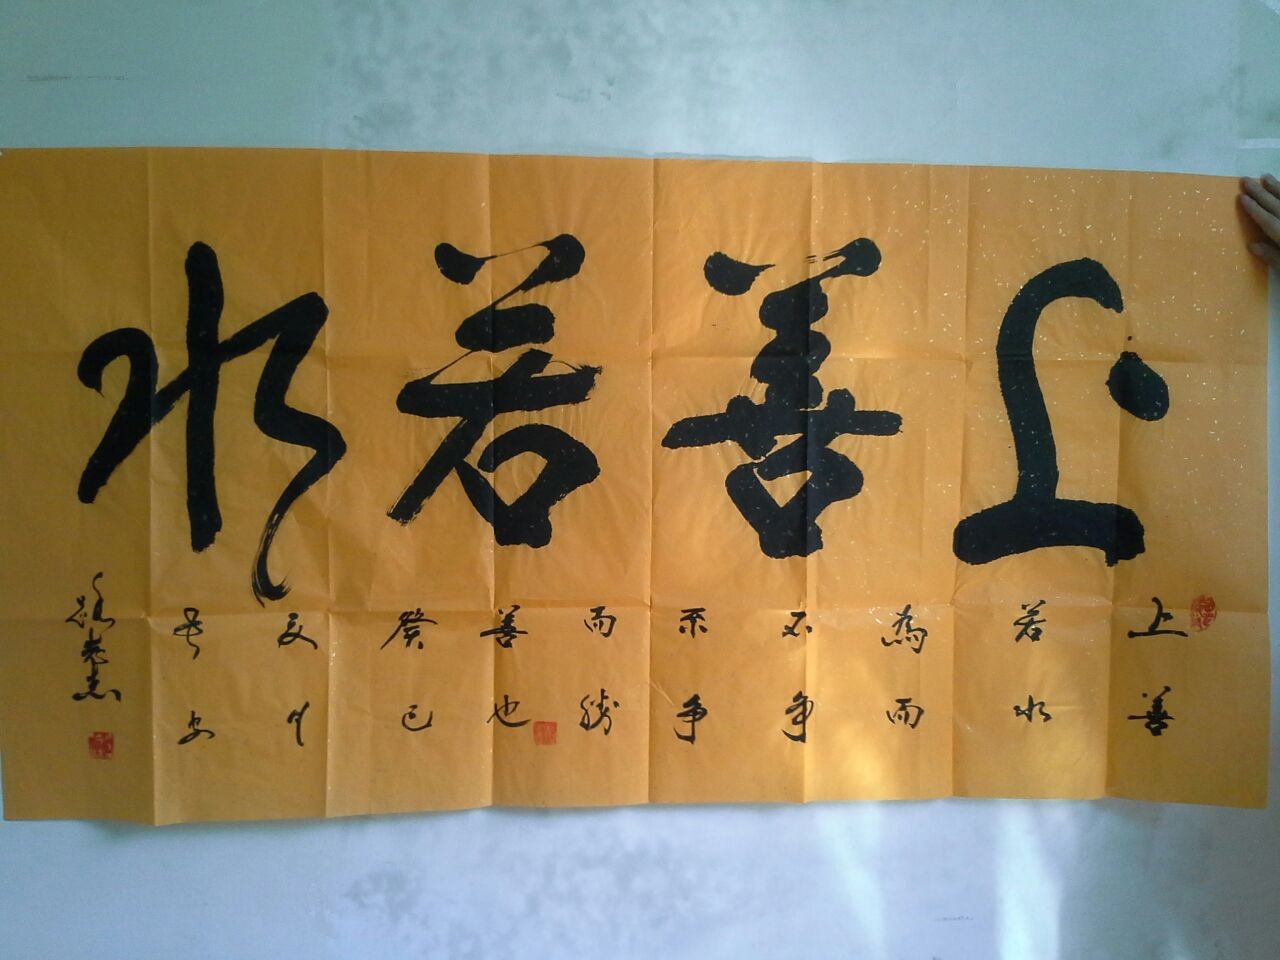 上善若水
上善
若水
為而
不争
不争
而勝
善也
癸巳
夏月
长安